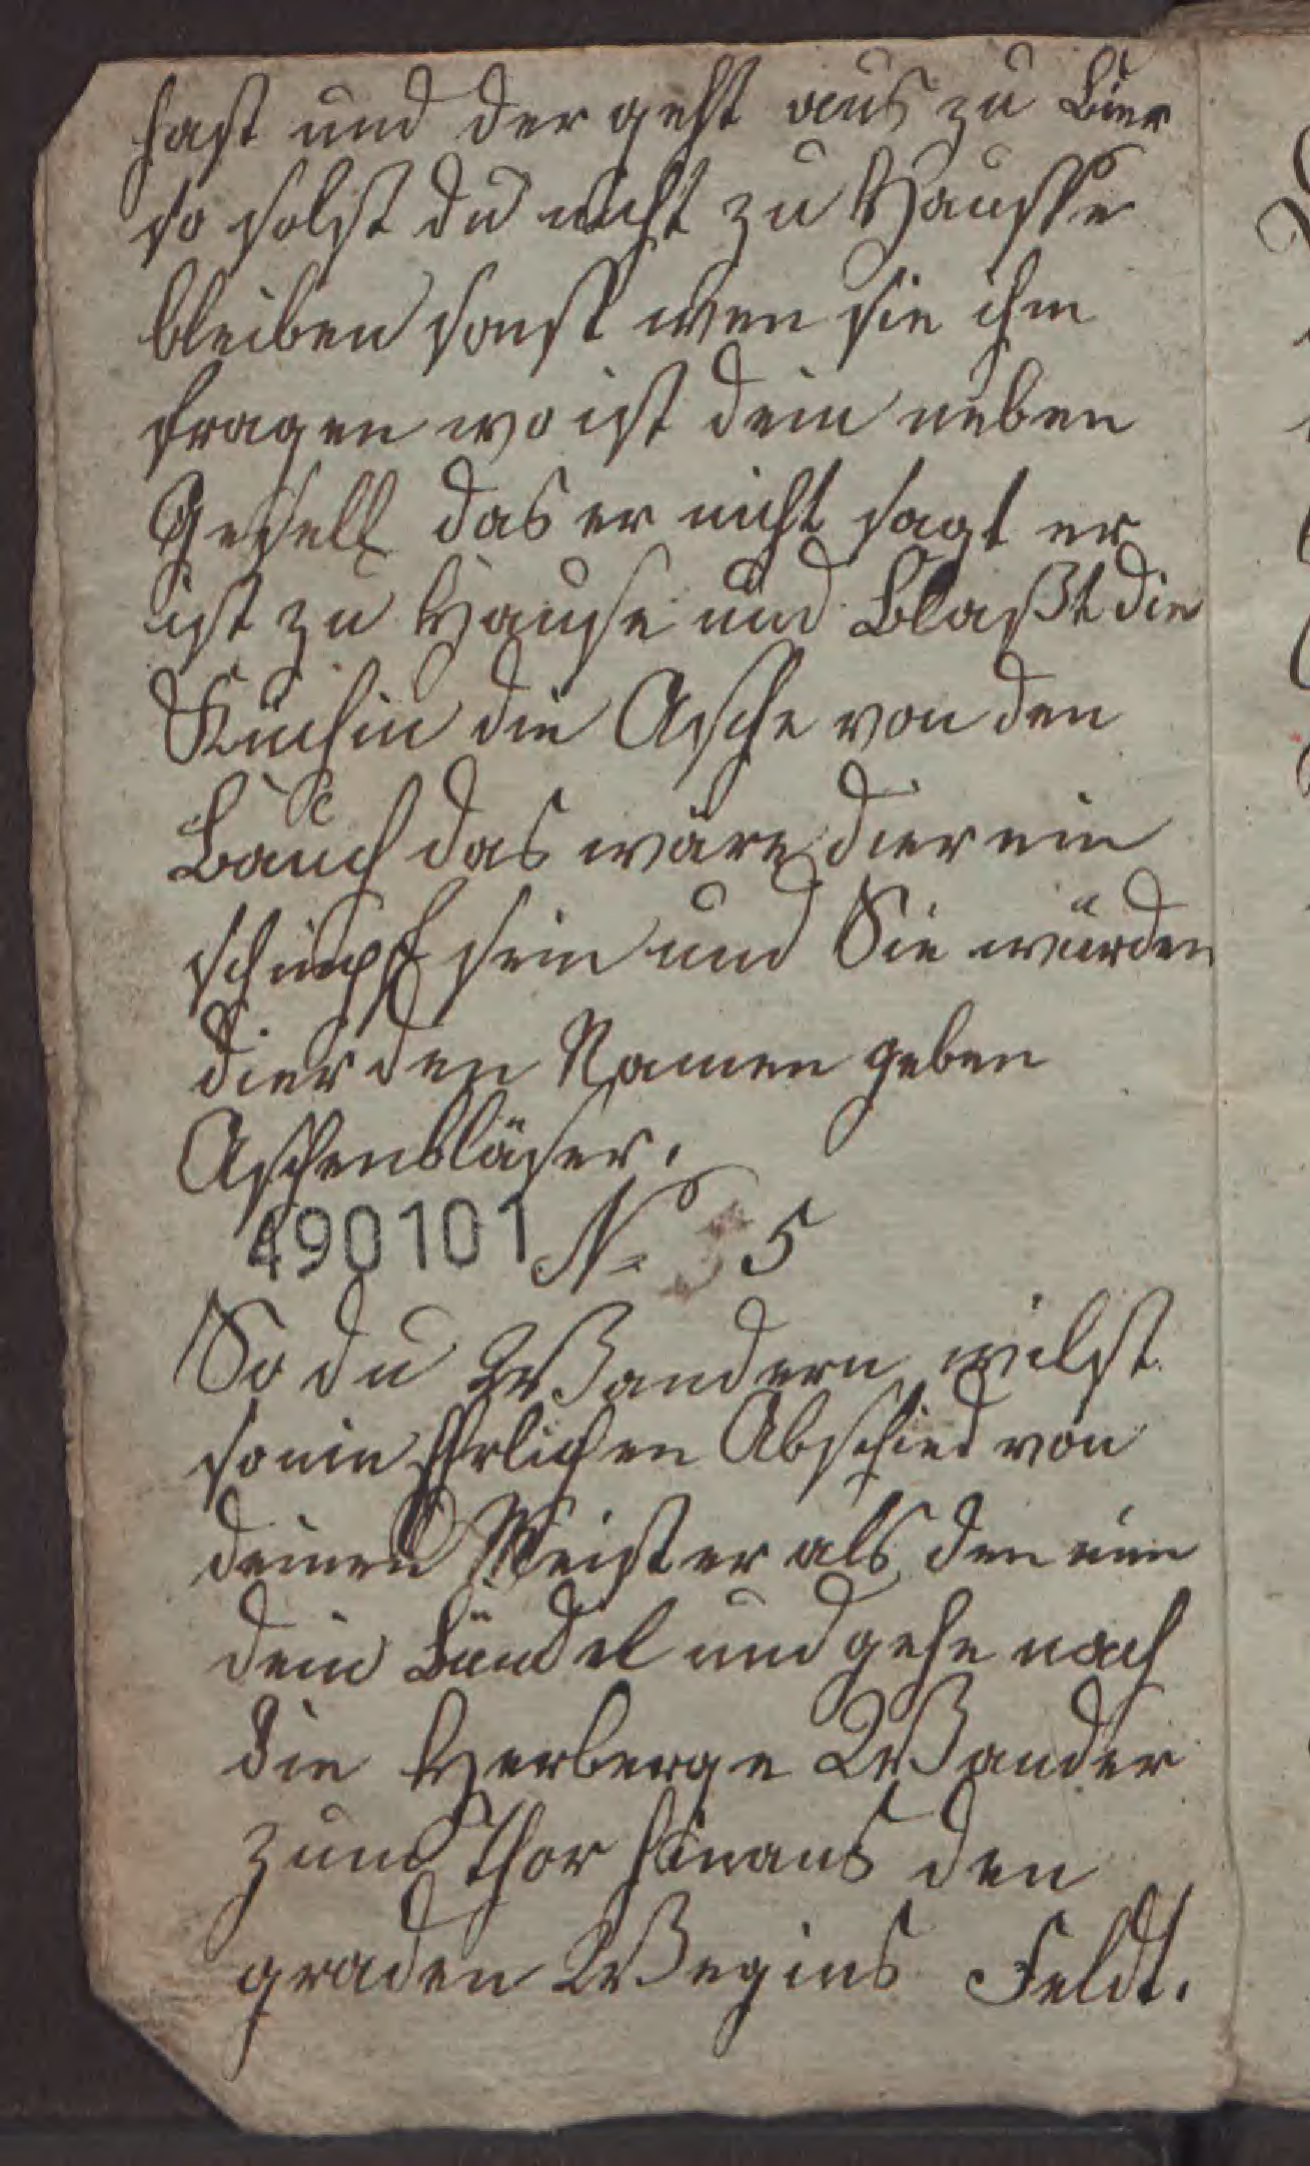 hast und der geht aus zu Bier
so solst du nicht zu Hausse
bleiben sonst wen sie ihm
fragen wo ist dein neben
Gesell das er nicht sagt er
ist zu Hause und Blaßt die
Küchin die Asche von den
Bauch das wäre dier ein
schimpf sein und Sie würden
dier den Namen geben
Aschenbläser.
490101 N 5
So du Wandern wilst
so nim Ehrlichen Abschied von
deinen Meister als den nim
dein Bündel und gehe nach
die Herberge Wander
zum Thor hinaus den
graden Weg ins Feldt.